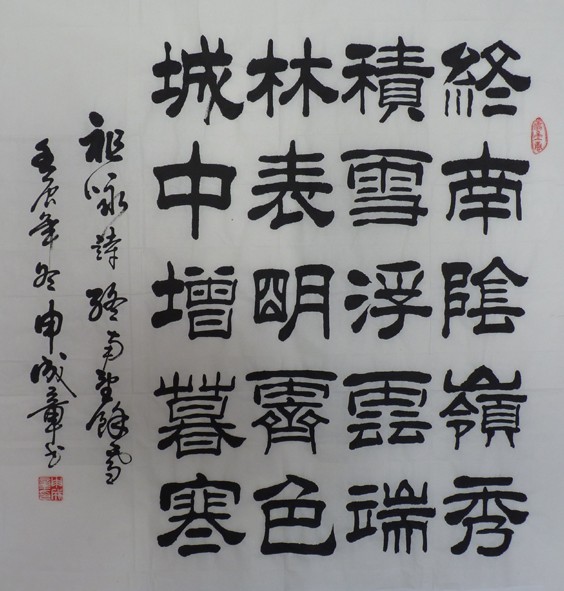 終南陰嶺秀
積雪浮雲端
林表明霽色
城中增暮寒
祖咏詩終南望餘雪
壬辰年冬申成章書